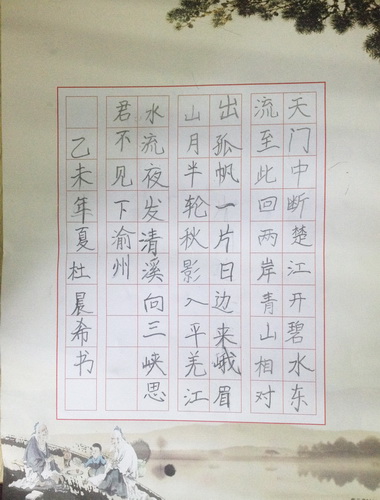 天门中断楚江开碧水东
流至此回两岸青山相对
出孤帆一片日边来峨眉
山月半轮秋影入平羌江
水流夜发清溪向三峡思
君不见下渝州
乙未年夏杜晨希书